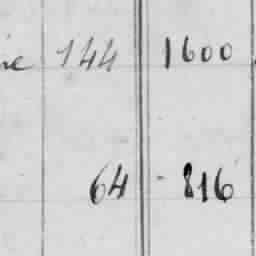 144 1600
64 816